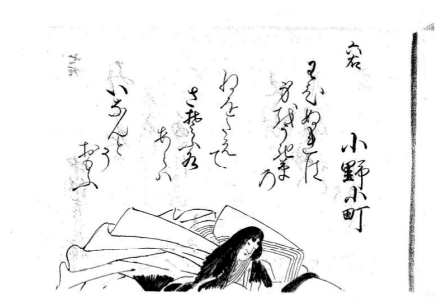 小野小町
わひぬれは
身をうき草
の
ねをたえて
さそふ水
あらハ
いなんと
そ
おもふ